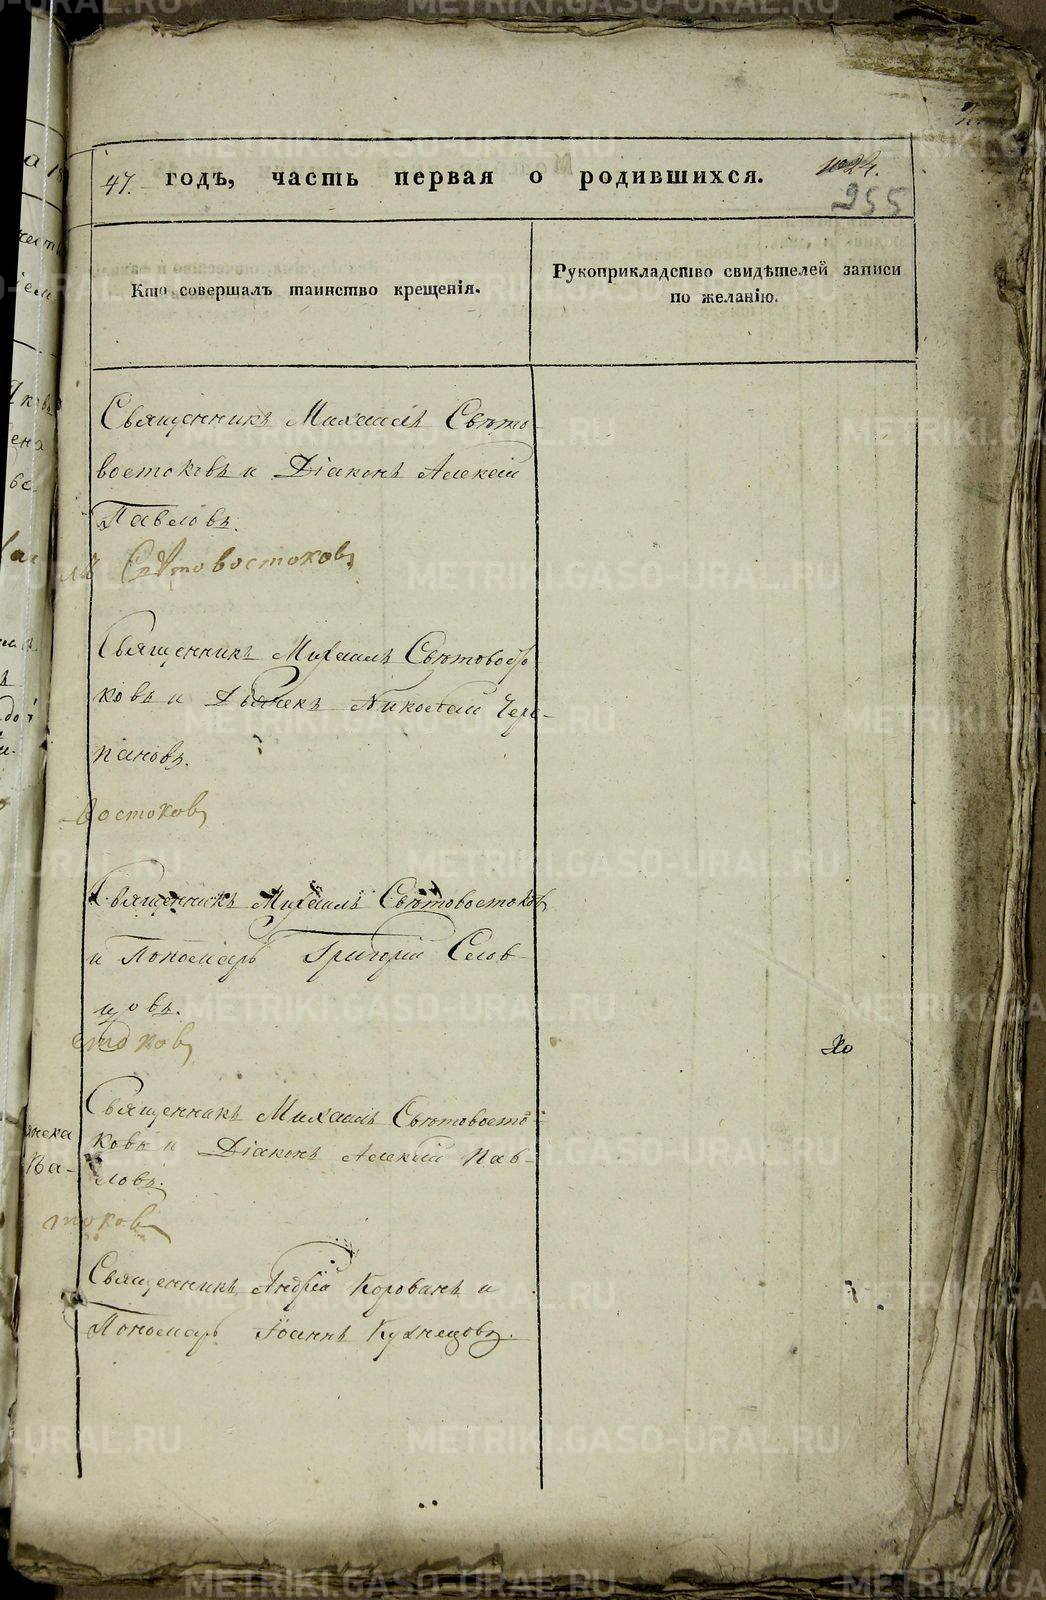 47. годъ, часть первая о родившихся.
255
Кто совершалъ таинство крещенія.
Рукоприкладство свидѣтелей записи
по желанію.
Священникъ Михаилъ Свѣто-
востоковъ и Діаконъ Алексій
Павловъ.
лъ Свѣтовостоковъ
Священникъ Михаилъ Свѣтовосто
ковъ и Дьячекъ Николай Чере-
пановъ.
-востоковъ
Священникъ Михаилъ Свѣтовостоковъ
и Пономарь Григорій Слов-
цовъ.
стоковъ
Священникъ Михаилъ Свѣтовосто-
ковъ и Діаконъ Алексій Пав-
ловъ.
токовъ
Священникъ Андрей Корованъ и
Пономарь Іоаннъ Кузнецовъ.
METRIKI.GASO-URAL.RU